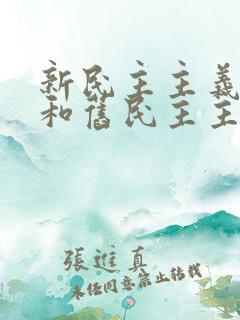 新民主主義
和舊民主主
張進真
未经同意禁止转载